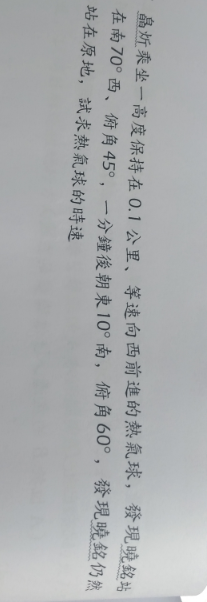 晶炘乘坐一高度保持在 0.1 公里、等速向西前進的熱氣球，發現曉銘站
在南70°西、俯角45°，一分鐘後朝東10°南，俯角60°，發現曉銘仍然
站在原地，試求熱氣球的時速